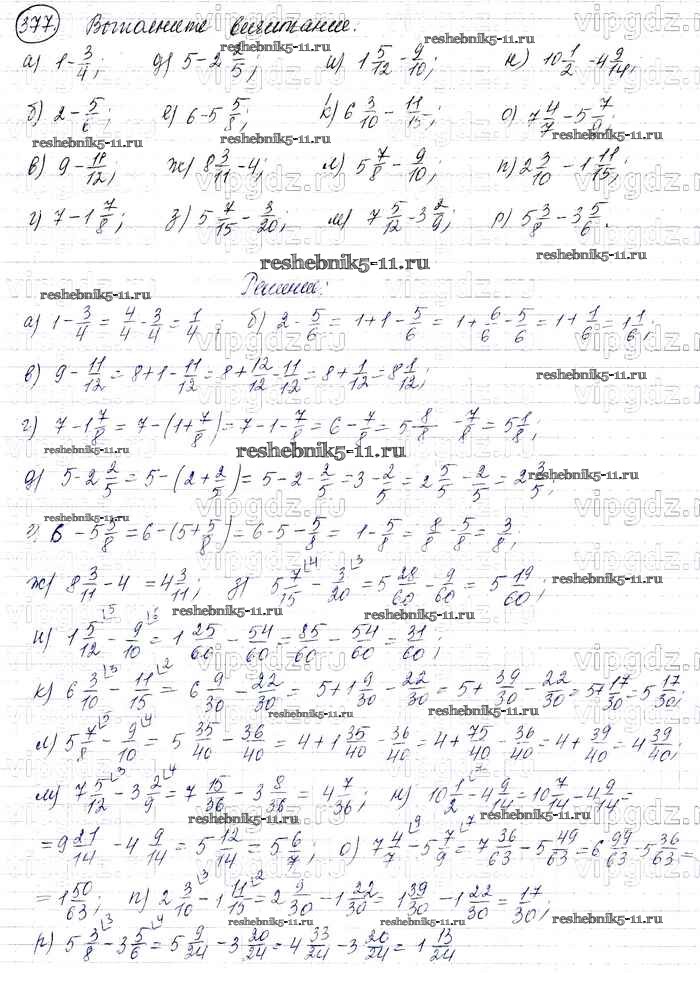 377. Выполните вычитание:
а) 1 - 3/4; д) 5 - 2 2/5; и) 1 5/12 - 9/10; н) 10 1/2 - 4 9/14;
б) 2 - 5/6; е) 6 - 5 5/8; к) 6 3/10 - 11/15; о) 7 4/7 - 5 7/9;
в) 9 - 11/12; ж) 8 3/11 - 4; л) 5 7/8 - 9/10; п) 2 3/10 - 1 11/15;
г) 7 - 1 7/8; з) 5 7/15 - 3/20; м) 7 5/12 - 3 2/9; р) 5 3/8 - 3 5/6.
reshebnik5-11.ru
Решение:
а) 1 - 3/4 = 4/4 - 3/4 = 1/4; б) 2 - 5/6 = 1 + 1 - 5/6 = 1 + 6/6 - 5/6 = 1 + 1/6 = 1 1/6;
в) 9 - 11/12 = 8 + 1 - 11/12 = 8 + 12/12 - 11/12 = 8 + 1/12 = 8 1/12;
г) 7 - 1 7/8 = 7 - (1 + 7/8) = 7 - 1 - 7/8 = 6 - 7/8 = 5 8/8 - 7/8 = 5 1/8;
reshebnik5-11.ru
д) 5 - 2 2/5 = 5 - (2 + 2/5) = 5 - 2 - 2/5 = 3 - 2/5 = 2 5/5 - 2/5 = 2 3/5;
6 - 5 5/8 = 6 - (5 + 5/8) = 6 - 5 - 5/8 = 1 - 5/8 = 8/8 - 5/8 = 3/8;
ж) 8 3/11 - 4 = 4 3/11; з) 5 7/15 - 3/20 = 5 28/60 - 9/60 = 5 19/60;
и) 1 5/12 - 9/10 = 1 25/60 - 54/60 = 85/60 - 54/60 = 31/60;
к) 6 3/10 - 11/15 = 6 9/30 - 22/30 = 5 + 1 9/30 - 22/30 = 5 + 39/30 - 22/30 = 5 + 17/30 = 5 17/30;
л) 5 7/8 - 9/10 = 5 35/40 - 36/40 = 4 + 1 35/40 - 36/40 = 4 + 75/40 - 36/40 = 4 + 39/40 = 4 39/40;
м) 7 5/12 - 3 2/9 = 7 15/36 - 3 8/36 = 4 7/36; н) 10 1/2 - 4 9/14 = 10 7/14 - 4 9/14 =
= 9 21/14 - 4 9/14 = 5 12/14 = 5 6/7; о) 7 4/7 - 5 7/9 = 7 36/63 - 5 49/63 = 6 99/63 - 5 36/63 =
= 1 50/63; п) 2 3/10 - 1 11/15 = 2 9/30 - 1 22/30 = 1 39/30 - 1 22/30 = 17/30;
р) 5 3/8 - 3 5/6 = 5 9/24 - 3 20/24 = 4 33/24 - 3 20/24 = 1 13/24